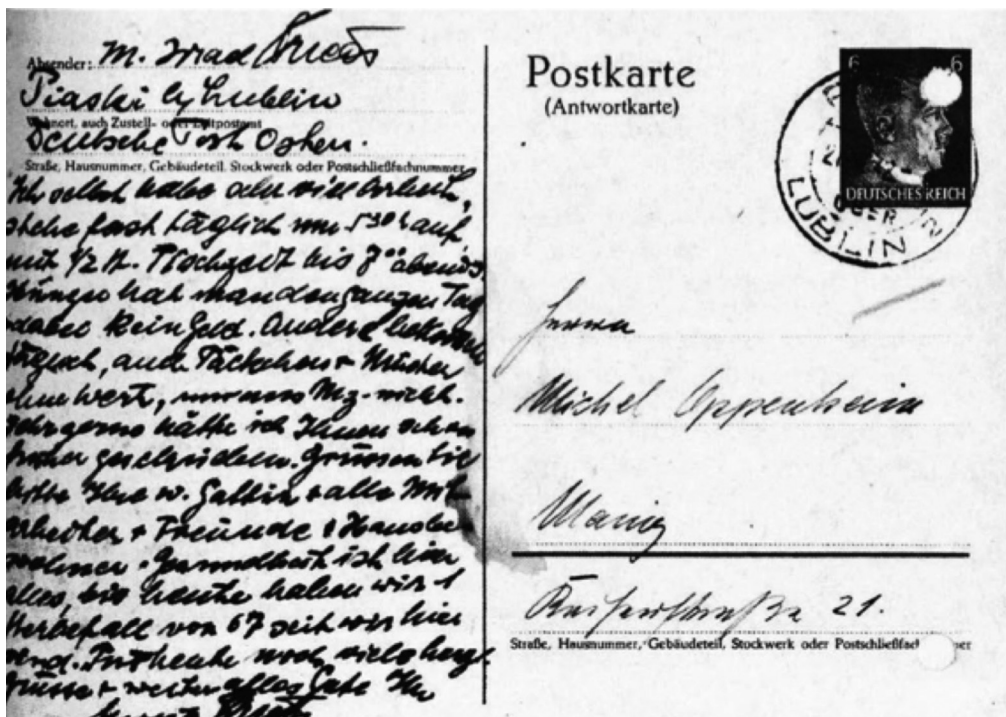 Absender: M.
Piaski b/Lublin
Wohnort, auch Zustell- oder Leitpostamt
Deutsche Post Osten.
Straße, Hausnummer, Gebäudeteil, Stockwerk oder Postschließfachnummer
Ich selbst habe aber viel Arbeit,
stehe fast täglich um 5³⁰ h auf
mit 1/2 St. bis 7°° abends
Hunger hat man den ganzen Tag
dabei kein Geld. Andere bekommen
täglich, auch Päckchen + Muster
ohne Wert, nur uns Mz. nicht.
Sehr gerne hätte ich Ihnen schon
früher geschrieben. Grüssen Sie
bitte Ihre w. Gattin + alle Mit-
arbeiter + Freunde + Hausbe-
wohner. Gesundheit ist hier
alles, bis heute haben wir 1
Sterbefall von 67 seit wir hier
sind. Für heute noch viele herzl.
Grüsse + weiter alles Gute Ihr
Postkarte
(Antwortkarte)
6 6
DEUTSCHES REICH
LUBLIN
Herrn
Michel Oppenheim
Mainz
Kaiserstraße 21.
Straße, Hausnummer, Gebäudeteil, Stockwerk oder Postschließfach